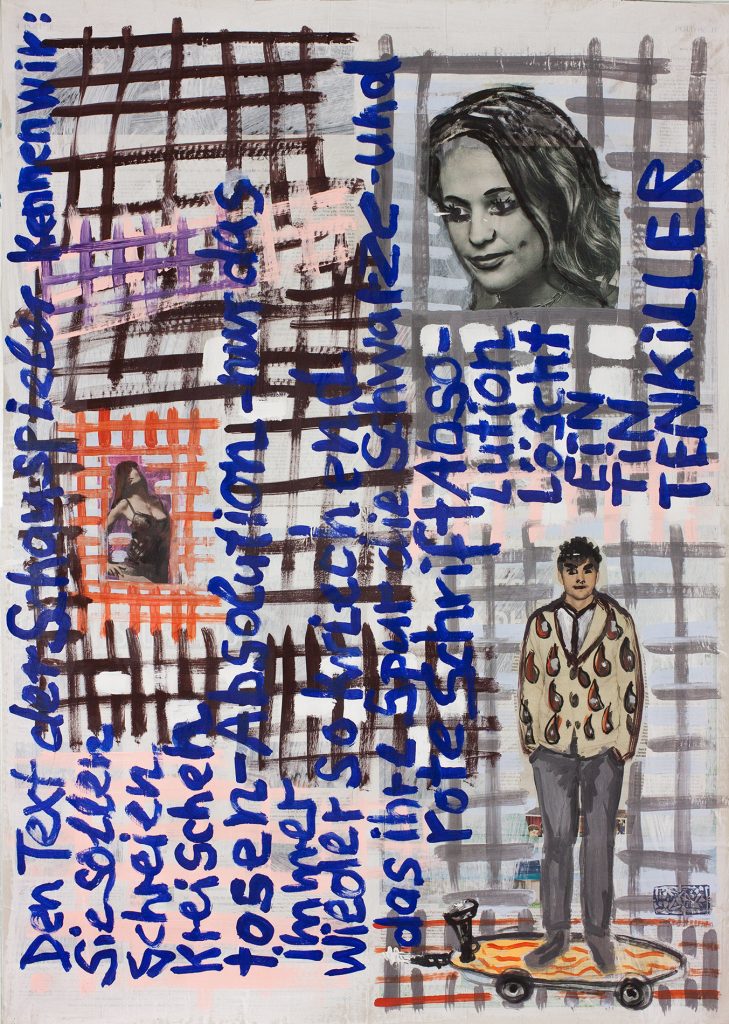 Den Text der Schauspieler kennen wir:
Sie sollen
Schreien
Kreischen
tosen-Absolution-nur das
Immer
wieder so kriechend
das ihre Spur die schwarze-und
rote Schrift Abso-
lution
Löscht
EiN
TiN
TENKiLLER